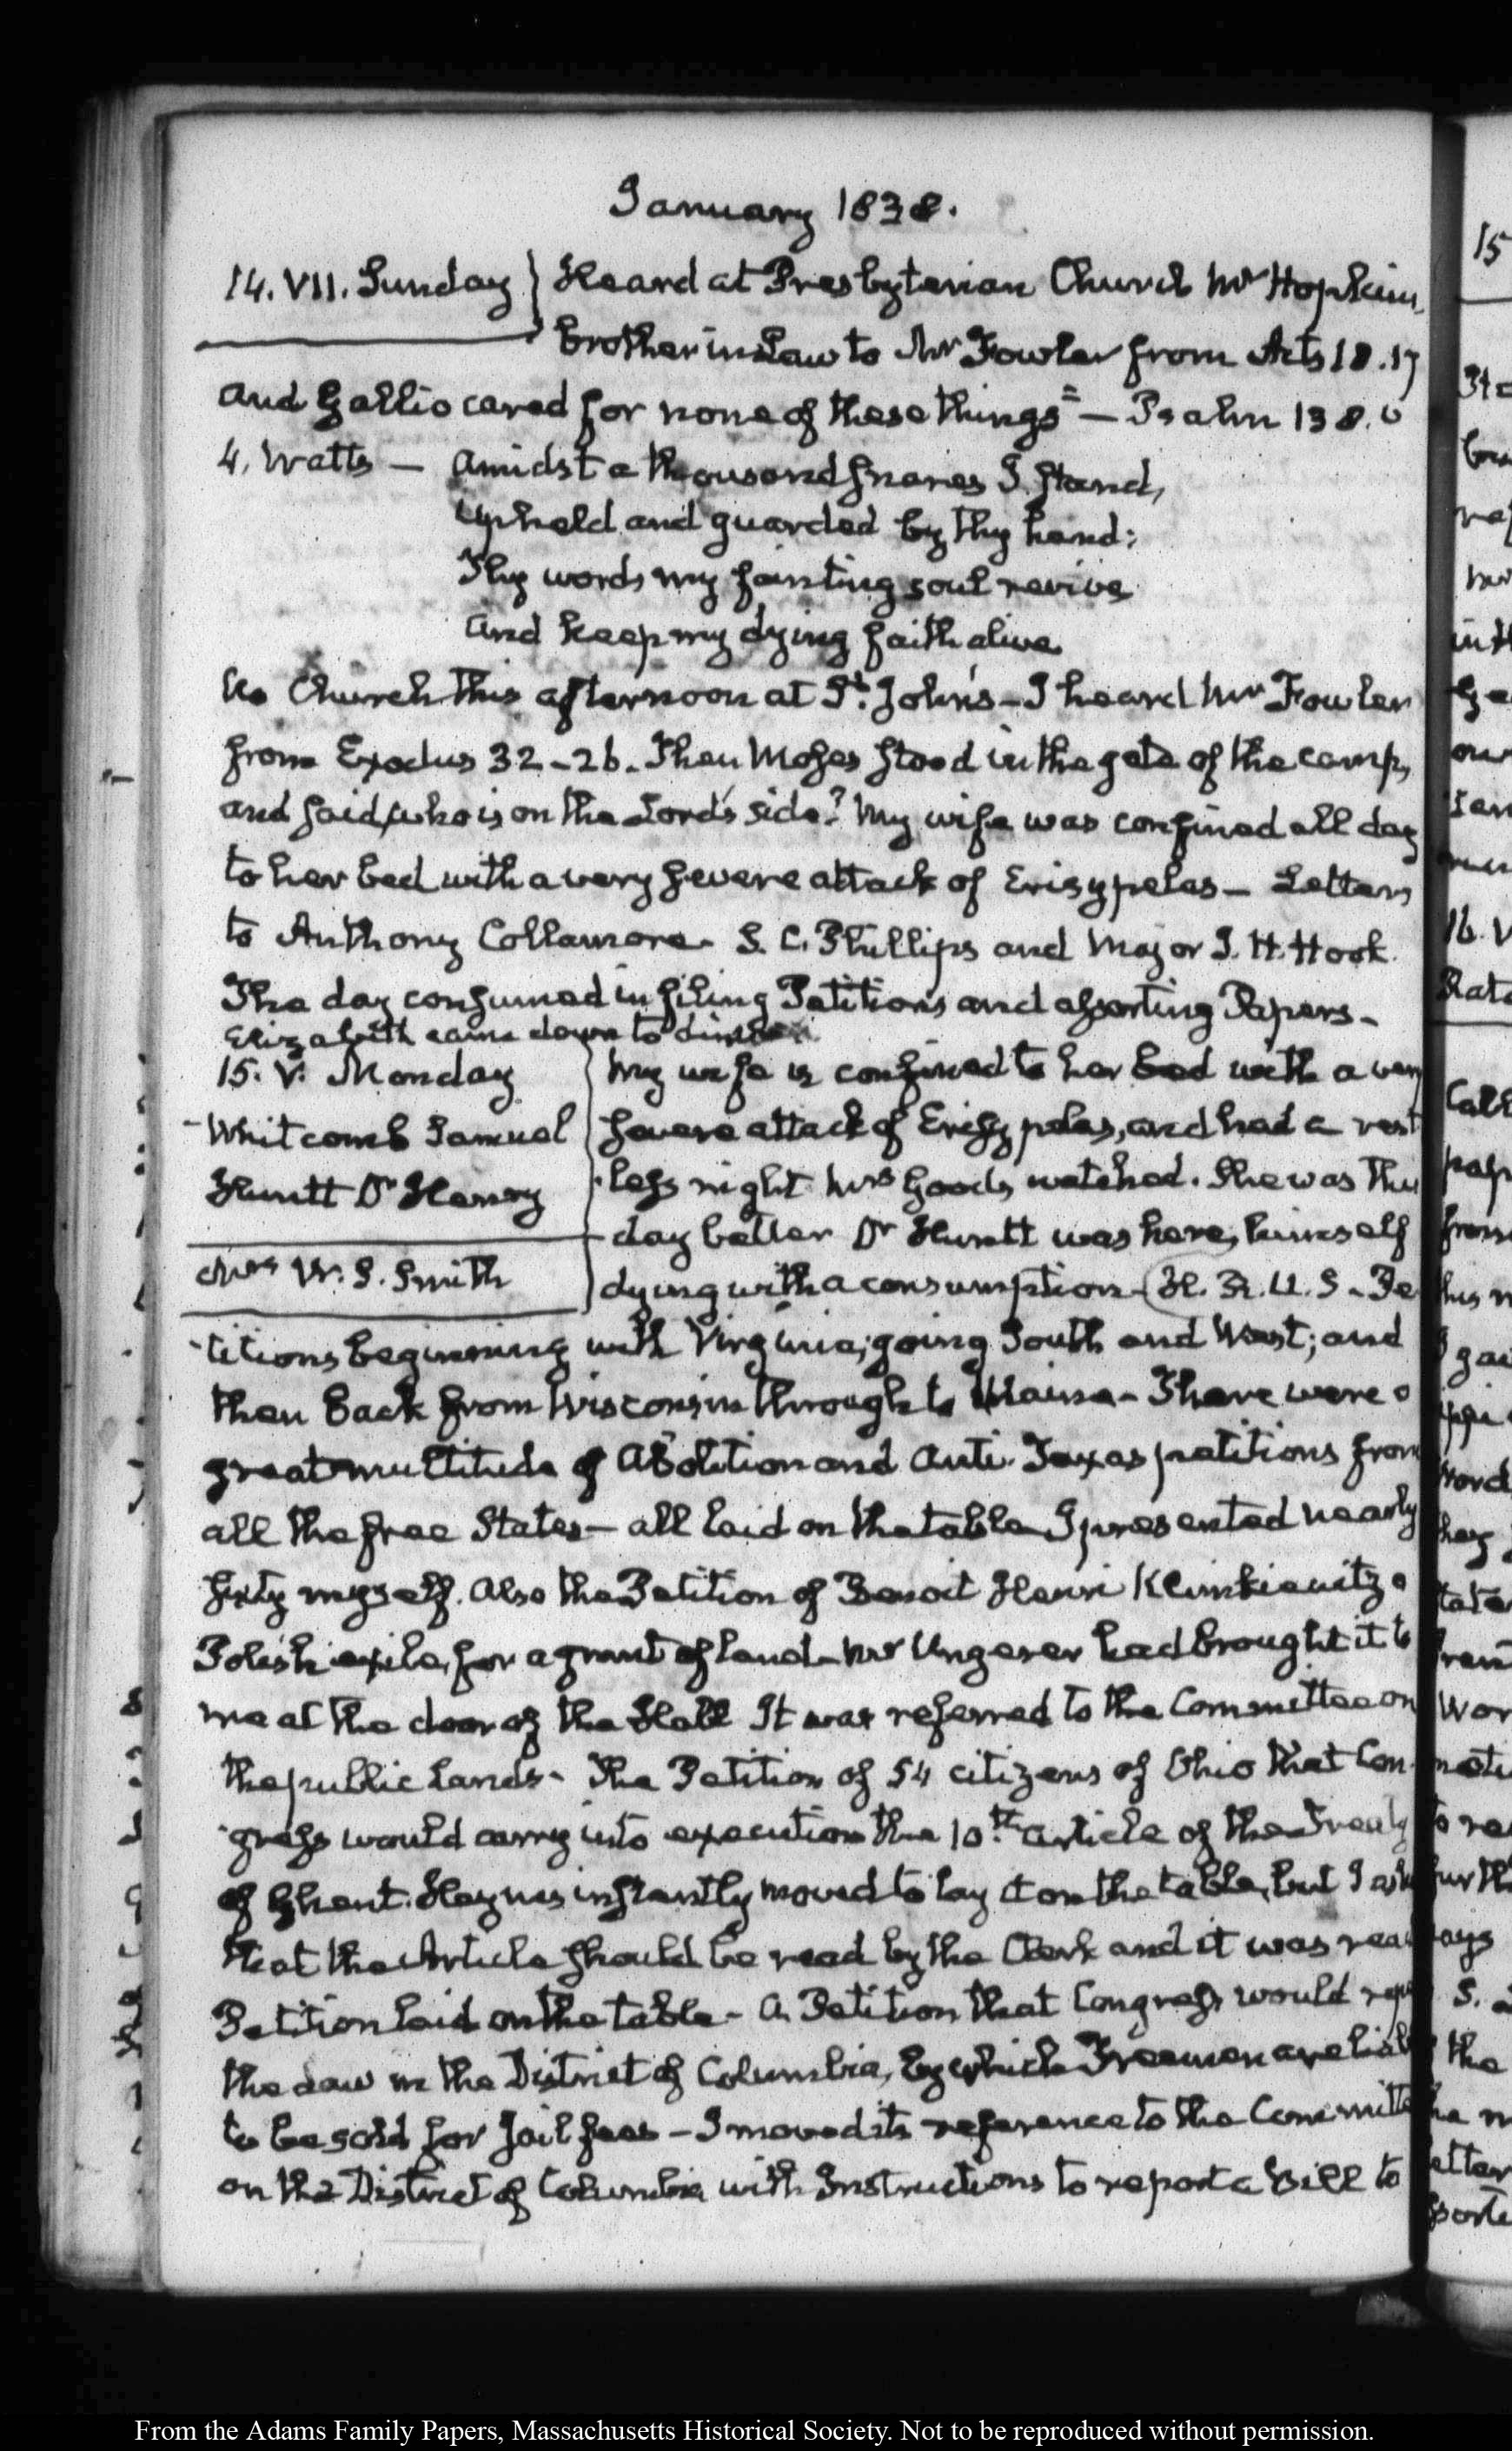 January 1838.
14. VII. Sunday } Heard at Presbyterian Church Mr Hopkins,
brother in Law to Mr Fowler from Acts 18.17
and Gallio cared for none of these things" — Psalm 138.
4. Watts — Amidst a thousand snares I stand,
Upheld and guarded by thy hand:
Thy words my fainting soul revive
And keep my dying faith alive
No Church this afternoon at St. John's — I heard Mr Fowler
from Exodus 32-26. Then Moses stood in the gate of the camp,
and said, who is on the Lord's side? My wife was confined all day
to her bed with a very severe attack of Erisypelas — Letters
to Anthony Collamore. S. C. Phillips and Major J. H. Hook.
The day consumed in filing Petitions and assorting Papers —
Elizabeth came down to dinner
15. V. Monday
Whitcomb Samuel
Huntt Dr Henry
Mrs W. S. Smith
My wife is confined to her bed with a very
severe attack of Erisypelas, and had a rest-
less night Mrs Goods watched. She was this
day better Dr Huntt was here, himself
dying with a consumption — H. R. U. S. Pe
titions beginning with Virginia, going South and West; and
then back from Wisconsin through to Maine — There were a
great multitude of Abolition and Anti-Texas petitions from
all the free States — all laid on the table I presented nearly
fifty myself. Also the Petition of Benoit Henri Klimkiewitz a
Polish exile, for a grant of land — Mr Ungerer had brought it to
me at the door of the Hall It was referred to the Committee on
the public Lands — The Petition of 54 citizens of Ohio that Con-
gress would carry into execution the 10th. Article of the Treaty
of Ghent. Haynes instantly moved to lay it on the table, but I ask
that the Article should be read by the Clerk and it was read
Petition laid on the table — A Petition that Congress would
the Law in the District of Columbia, by which Freemen are liab
to be sold for Jail fees — I moved its reference to the Committe
on the District of Columbia with Instructions to report a Bill to
From the Adams Family Papers, Massachusetts Historical Society. Not to be reproduced without permission.